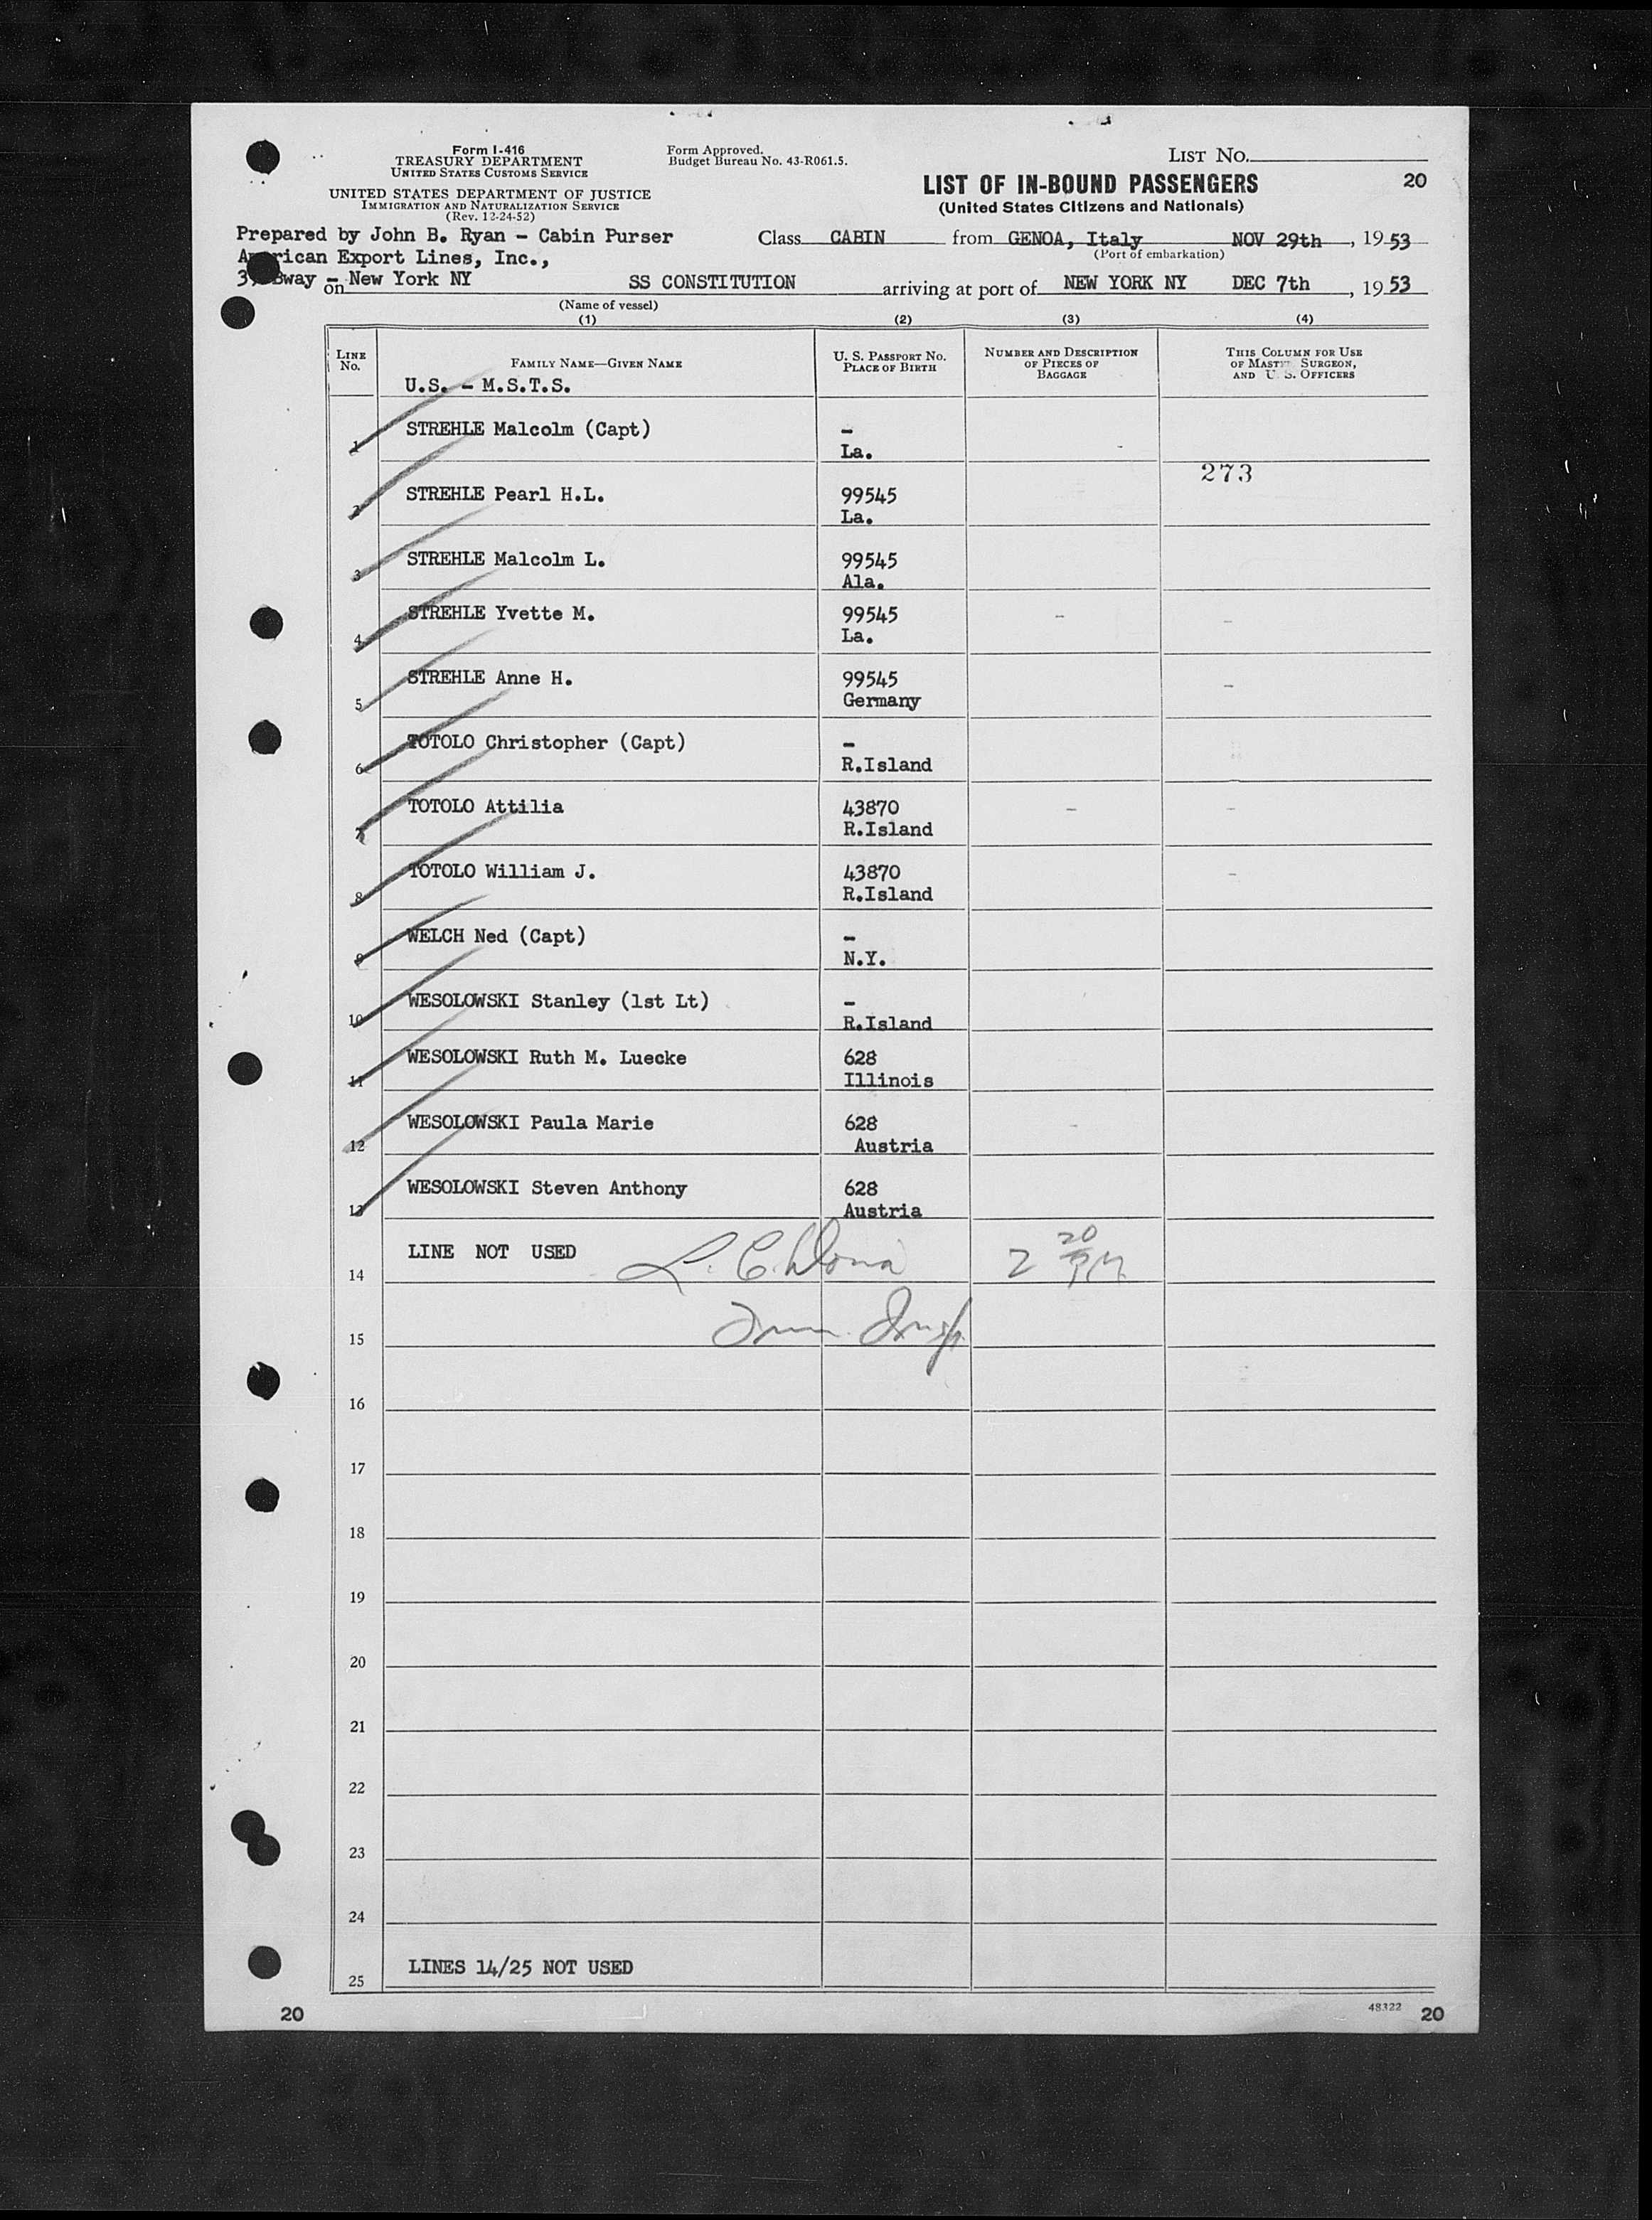 Form I-416
TREASURY DEPARTMENT
UNITED STATES CUSTOMS SERVICE
UNITED STATES DEPARTMENT OF JUSTICE
IMMIGRATION AND NATURALIZATION SERVICE
(Rev. 12-24-52)
Form Approved.
Budget Bureau No. 43-R061.5.
LIST NO.
LIST OF IN-BOUND PASSENGERS 20
(United States Citizens and Nationals)
Prepared by John B. Ryan - Cabin Purser
Class CABIN from GENOA, Italy NOV 29th, 1953
(Port of embarkation)
American Export Lines, Inc.,
Bway - New York NY
on SS CONSTITUTION arriving at port of NEW YORK NY DEC 7th, 1953
(Name of vessel)
(1) (2) (3) (4)
LINE NO. FAMILY NAME—GIVEN NAME U. S. PASSPORT NO. PLACE OF BIRTH NUMBER AND DESCRIPTION OF PIECES OF BAGGAGE THIS COLUMN FOR USE OF MASTER SURGEON, AND U. S. OFFICERS
U.S. - M.S.T.S.
1 STREHLE Malcolm (Capt) -
La.
273
2 STREHLE Pearl H.L. 99545
La.
3 STREHLE Malcolm L. 99545
Ala.
4 STREHLE Yvette M. 99545
La.
5 STREHLE Anne H. 99545
Germany
6 TOTOLO Christopher (Capt) -
R.Island
7 TOTOLO Attilia 43870
R.Island
8 TOTOLO William J. 43870
R.Island
9 WELCH Ned (Capt) -
N.Y.
10 WESOLOWSKI Stanley (1st Lt) -
R.Island
11 WESOLOWSKI Ruth M. Luecke 628
Illinois
12 WESOLOWSKI Paula Marie 628
Austria
13 WESOLOWSKI Steven Anthony 628
Austria
14 LINE NOT USED 2 20 PM
15
16
17
18
19
20
21
22
23
24
25 LINES 14/25 NOT USED
48322
20 20